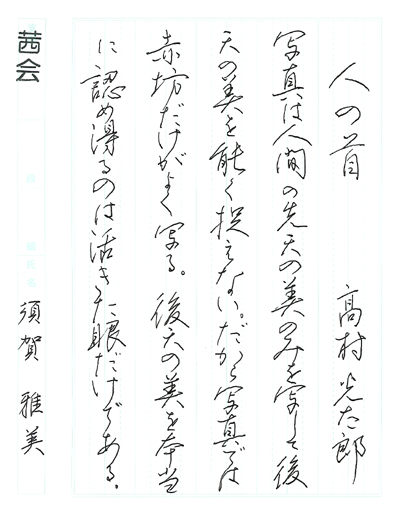 人の首　高村光太郎
写真は人間の先天の美のみを写して後
天の美を能く捉えない。だから写真では
赤坊だけがよく写る。後天の美を本当
に認め得るのは活きた眼だけである。
茜会
須賀　雅美